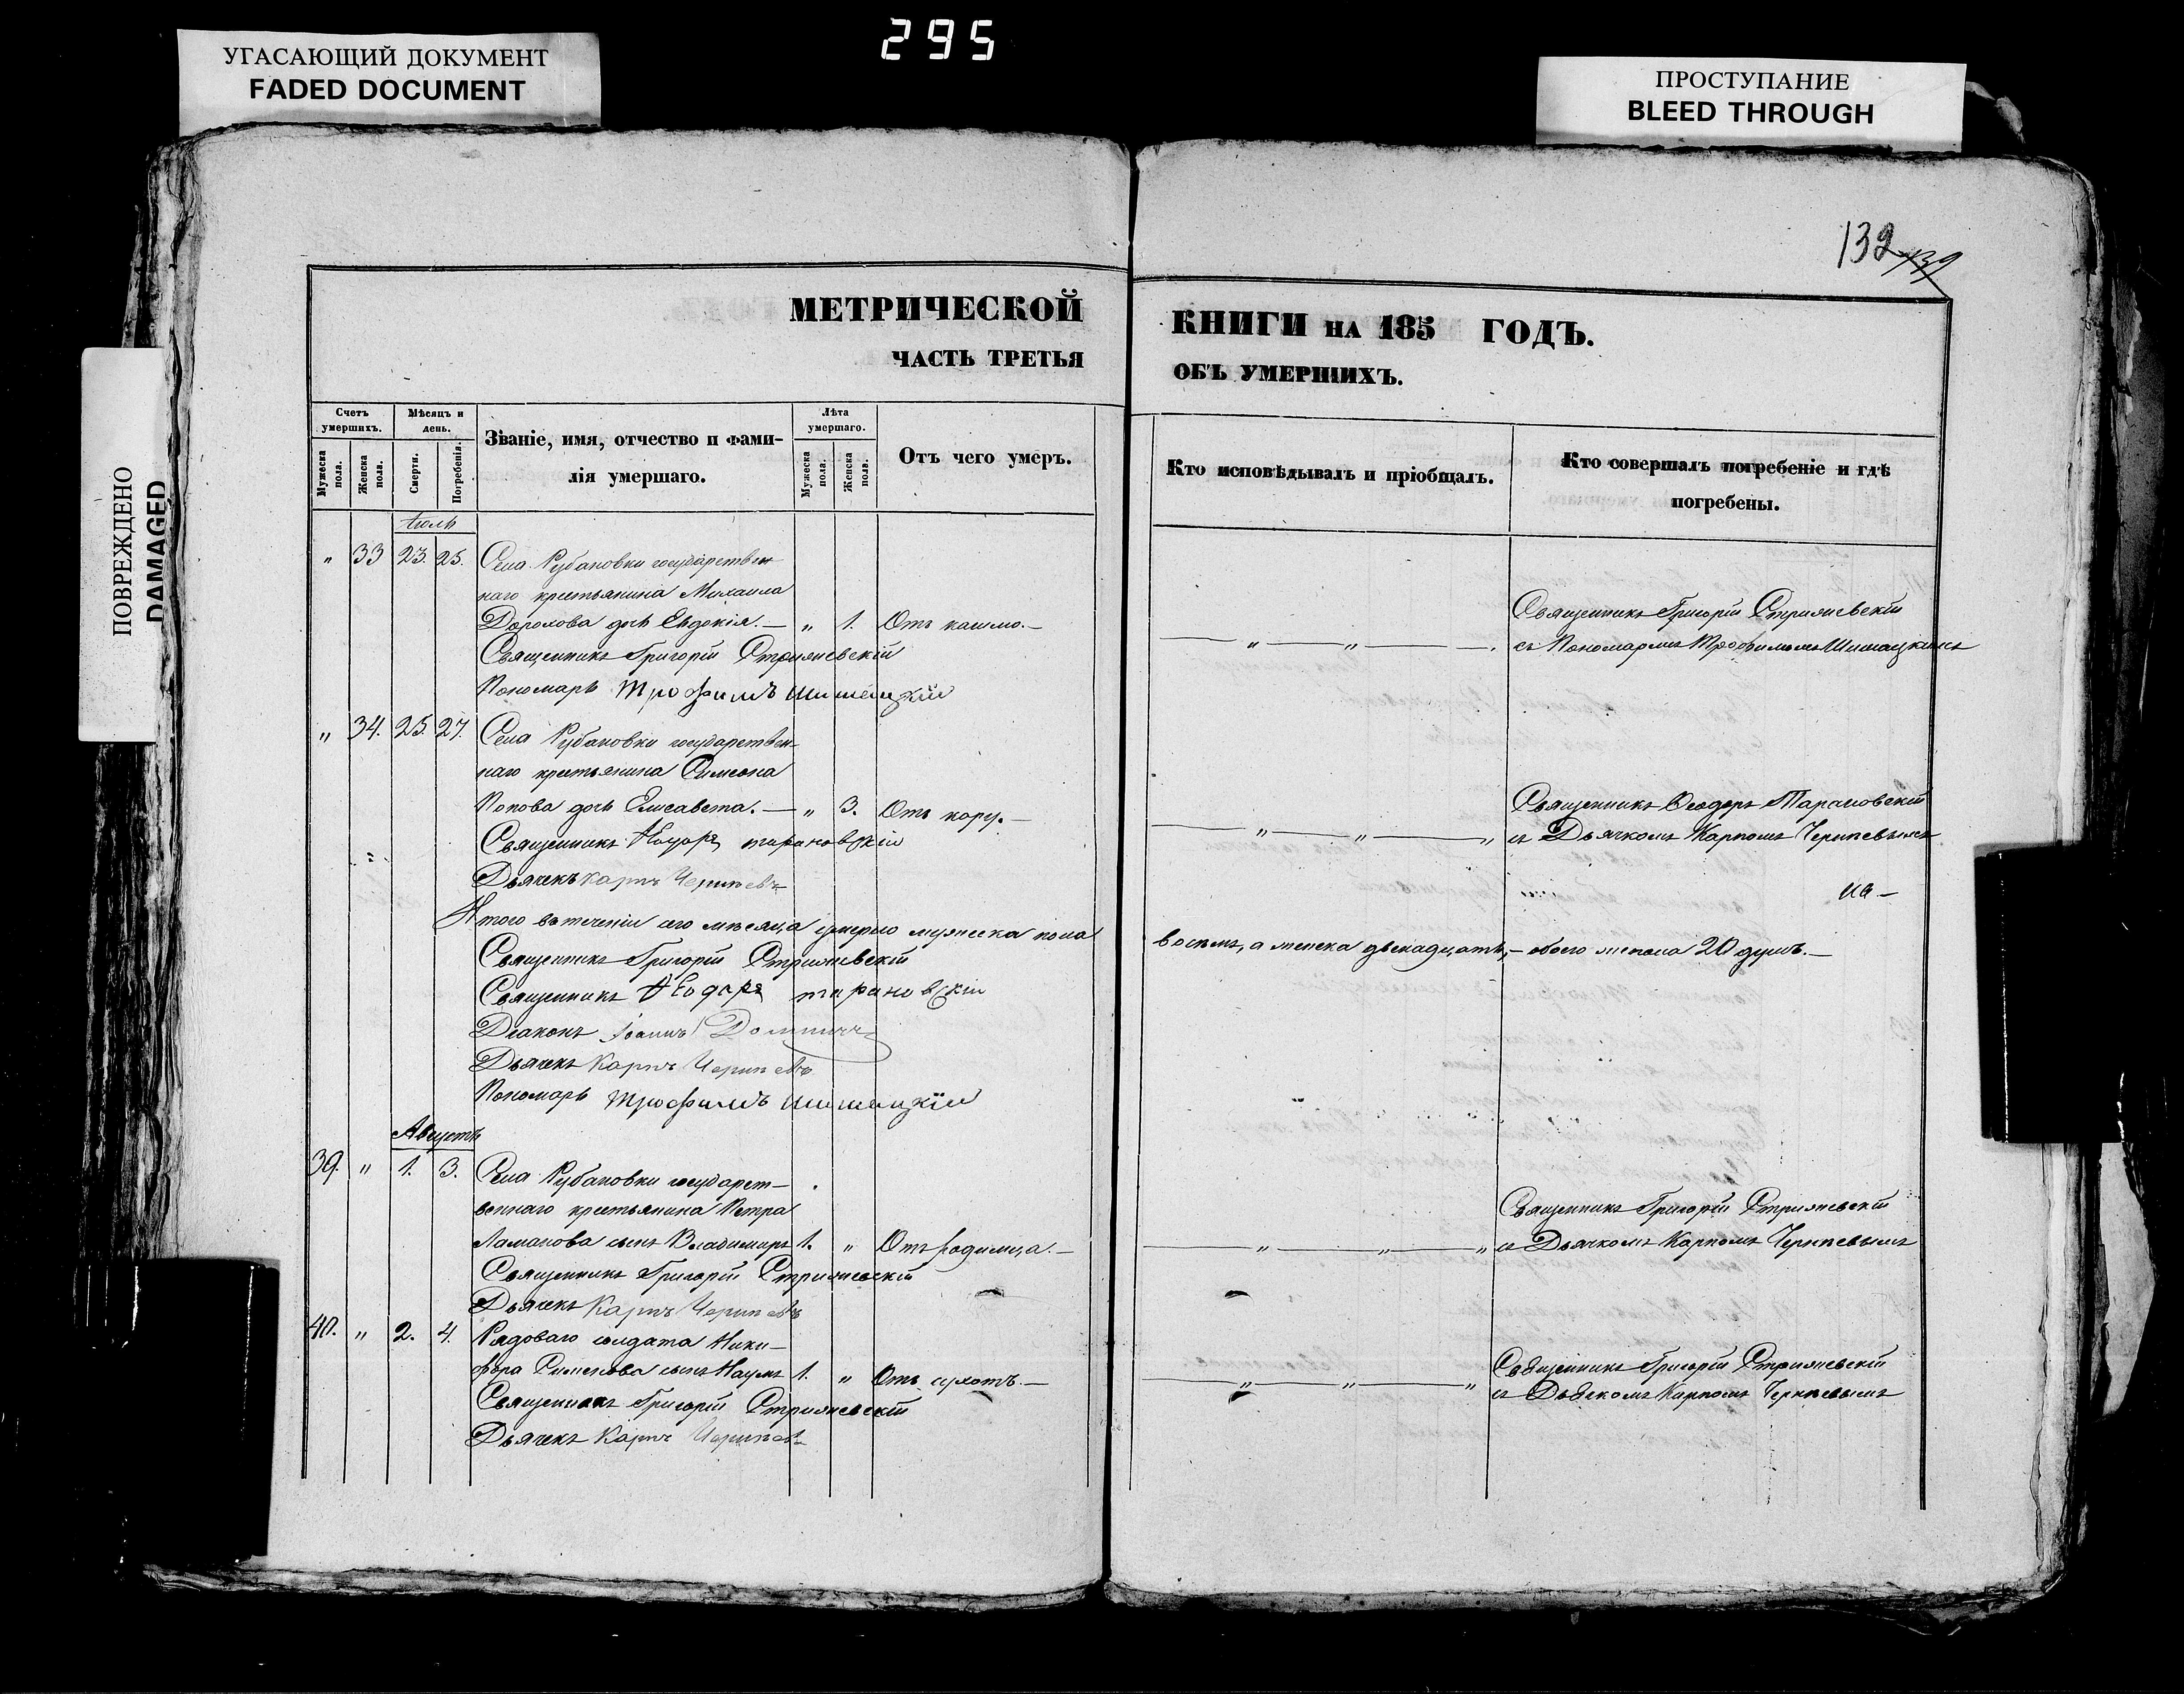 295
УГАСАЮЩИЙ ДОКУМЕНТ
FADED DOCUMENT
ПРОСТУПАНИЕ
BLEED THROUGH
ПОВРЕЖДЕНО
DAMAGED
132 139
МЕТРИЧЕСКОЙ
ЧАСТЬ ТРЕТЬЯ
Счетъ умершихъ.
Мужеска пола.
Женска пола.
Мѣсяцъ и день.
Смерти.
Погребенія.
Званіе, имя, отчество и фами-
лія умершаго.
Лѣта умершаго.
Мужеска пола.
Женска пола.
Отъ чего умеръ.
Іюль
" 33 23. 25. Села Рубановки государствен
наго крестьянина Михаила
Дорохова дочь Евдокія. — " 1. Отъ кашлю. —
Священникъ Григорій Стрижевскій
Пономарь Трофимъ Шишацкій
" 34. 25. 27. Села Рубановки государствен-
наго крестьянина Симеона
Попова дочь Елисавета. — " 3. Отъ кору. —
Священникъ Ѳеодоръ Тарановскій
Дьячекъ Карпъ Черипевъ
Итого въ теченіи сего мѣсяца умерло мужеска пола
Священникъ Григорій Стрижевскій
Священникъ Ѳеодоръ Тарановскій
Діаконъ Іоаннъ
Дьячекъ Карпъ Черипевъ
Пономарь Трофимъ Шишацкій
Августъ
39. " 1. 3. Села Рубановки государст-
веннаго крестьянина Петра
Ламанова сынъ Владимиръ 1. " Отъ родимца. —
Священникъ Григорій Стрижевскій
Дьячекъ Карпъ Черипевъ
40. " 2. 4. Рядоваго солдата Ники-
фора Сименова сынъ Наумъ 1. " Отъ сухотъ. —
Священникъ Григорій Стрижевскій
Дьячекъ Карпъ Черипевъ
КНИГИ НА 185 ГОДЪ.
ОБЪ УМЕРШИХЪ.
Кто исповѣдывалъ и пріобщалъ.
Кто совершалъ погребеніе и гдѣ
погребены.
Священникъ Григорій Стрижевскій
— " — " — . съ Пономаремъ Трофимомъ Шишацкимъ
Священникъ Ѳеодоръ Тарановскій
— " — " — " съ Дьячкомъ Карпомъ Черипевымъ
восемь, а женска двенадцать, — обоего же пола 20 душъ. —
Священникъ Григорій Стрижевскій
— " — " — " съ Дьячкомъ Карпомъ Черипевымъ
Священникъ Григорій Стрижевскій
— " — " — " съ Дьячкомъ Карпомъ Черипевымъ